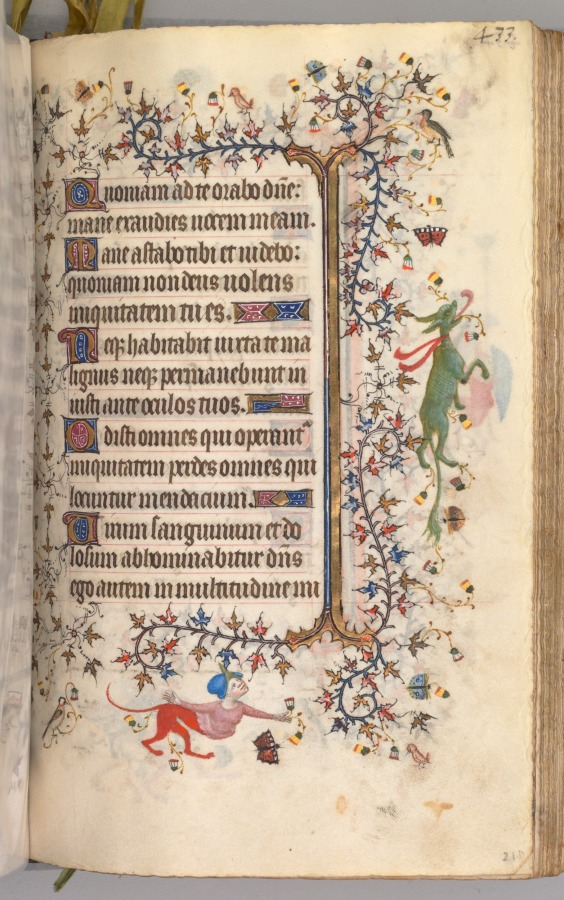 433
Quoniam ad te orabo dñe:
mane exaudies uocem meam.
Mane astabo tibi et uidebo:
quoniam non deus uolens
iniquitatem tu es.
Neqꝫ habitabit iuxta te ma
lignus neqꝫ permanebunt in
iusti ante oculos tuos.
Odisti omnes qui operantᷣ
iniquitatem perdes omnes qui
locuntur mendacium.
Uirum sanguinum et do
losum abhominabitur dñs
ego autem in multitudine mi